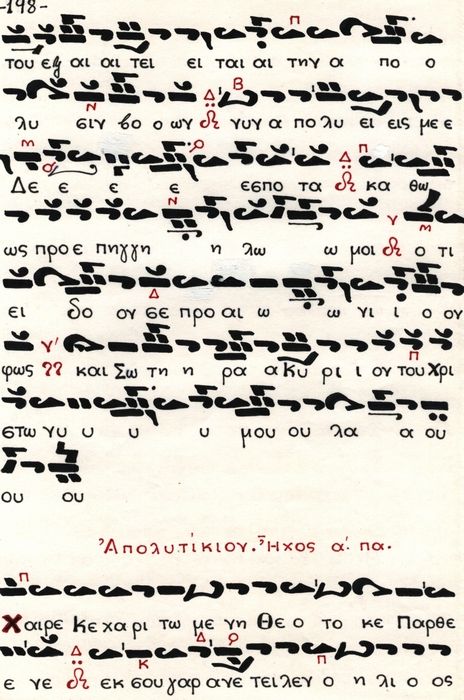 -198-
του εξ αι αι τει ει ται αι την α πο ο
λυ σιν βο ο ων νυν α πο λυ ει εις με ε
Δε ε ε ε εσπο τα κα θω
ως προ ε πηγγη η λω ω μοι ο τι
ει δο ον σε προ αι ω ω νι ι ο ον
φως και Σω τη η ρα α Κυ ρι ι ον του Χρι
στω νυ υ υ υ μου ου λα α ου
ου ου
Ἀπολυτίκιον. Ἦχος α΄. πα.
Χαιρε Κε χα ρι τω με νη Θε ο το κε Παρθε
ε νε εκ σου γαρ ανε τει λεν ο η λι ο ος